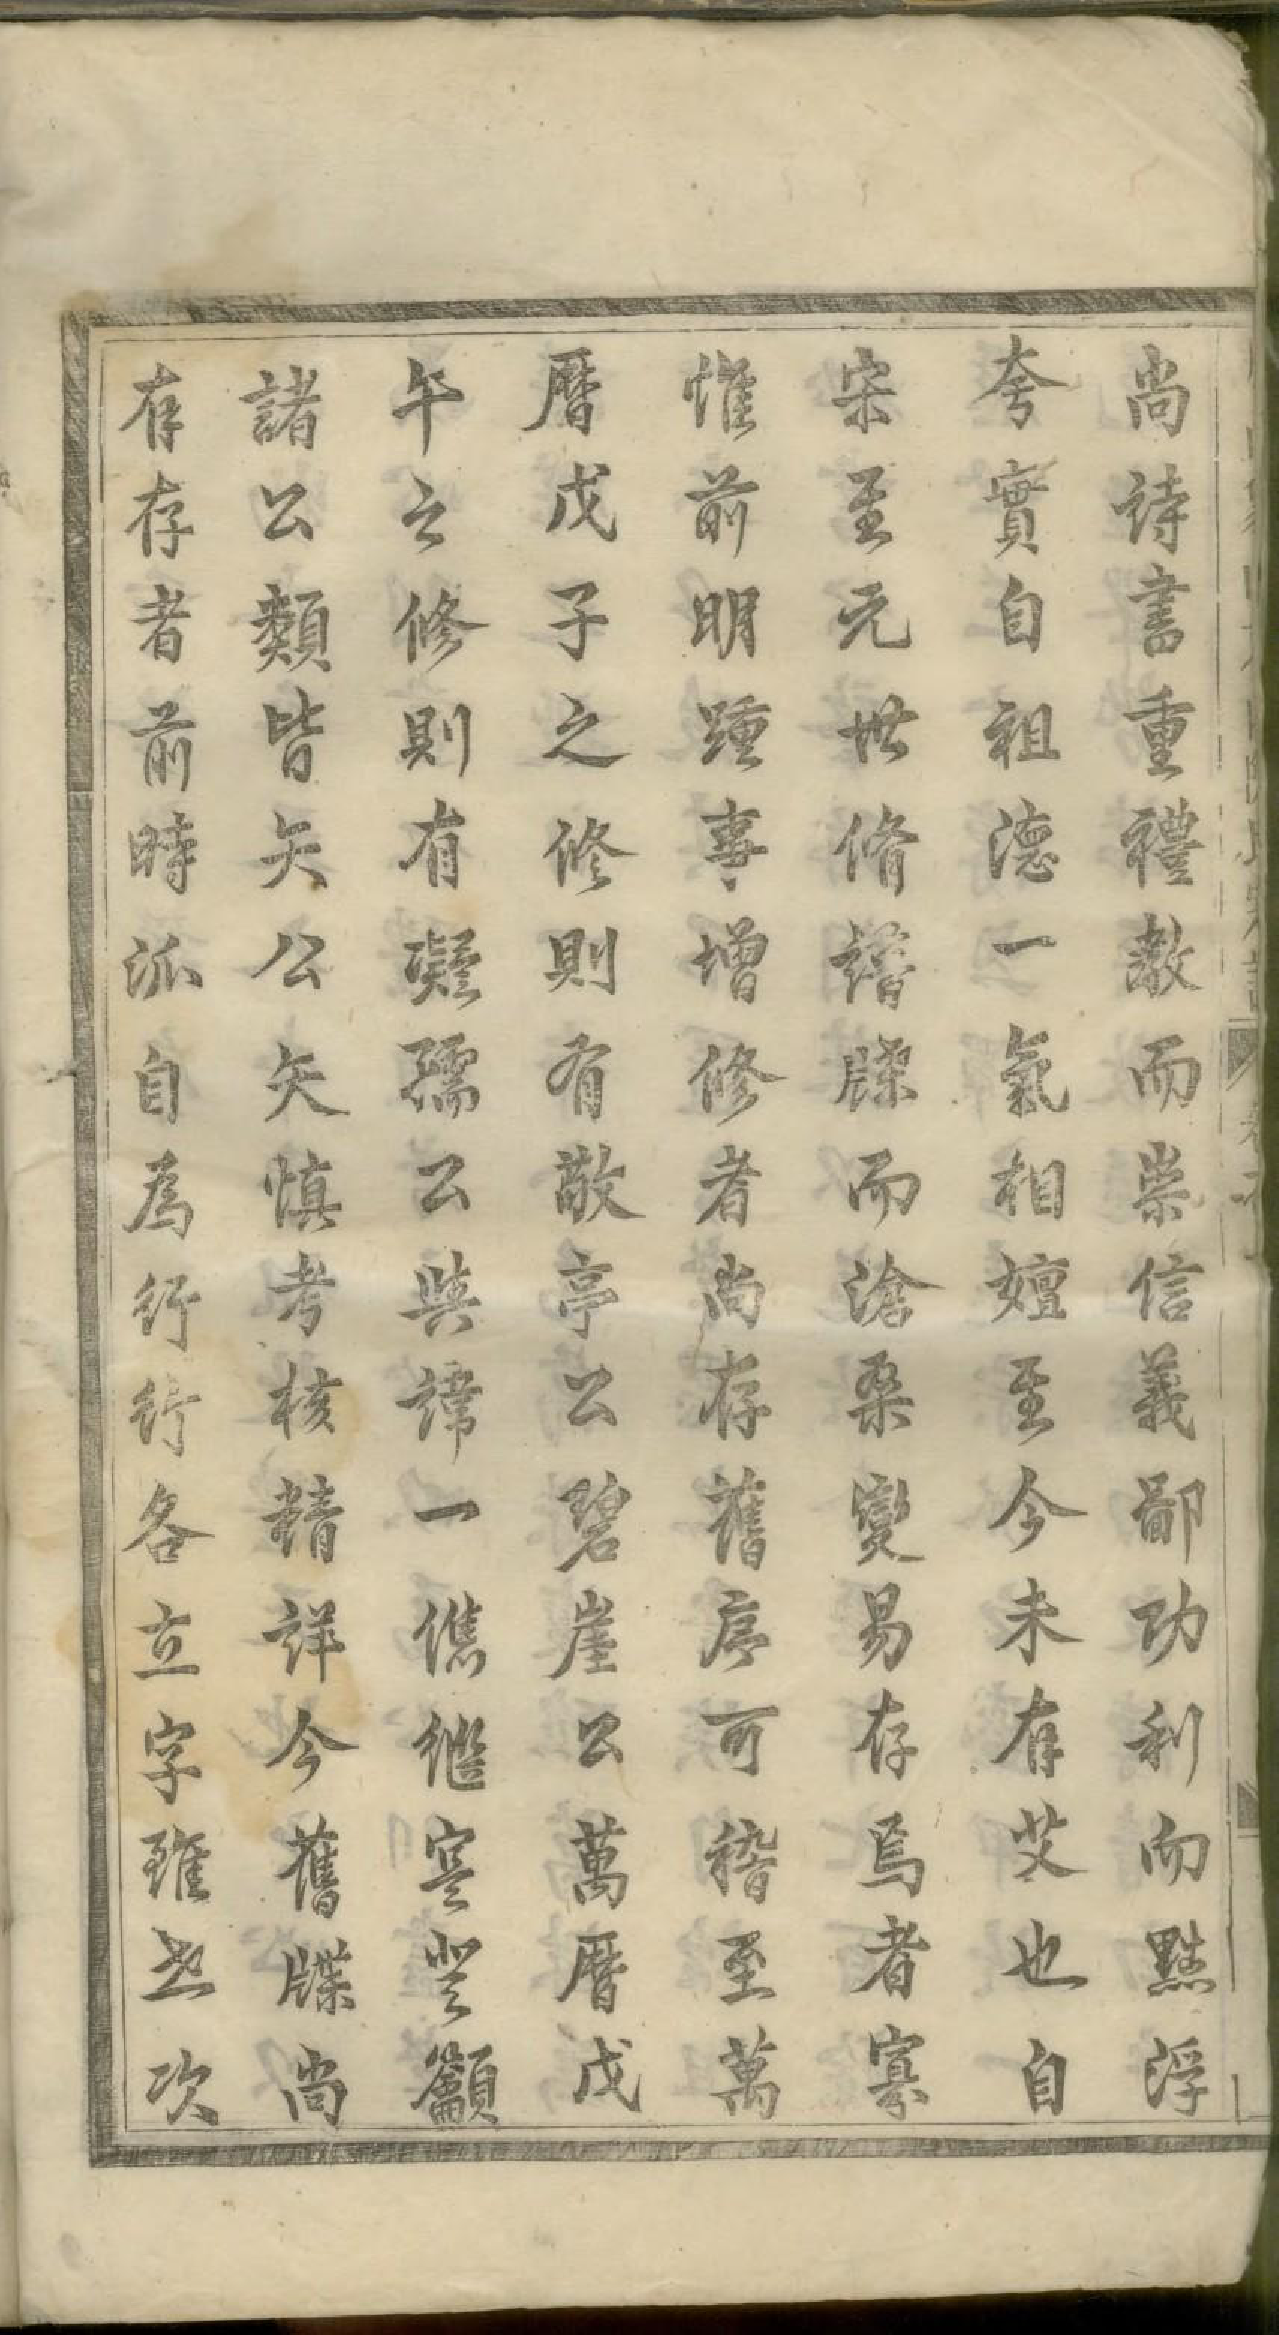 尚詩書重禮教而崇信義鄙功利而黜浮
夸實自祖德一氣相嬗至今未有艾也自
宋至元世脩譜牒而滄桑變易存焉者寡
惟前明踵事增修者尚存舊序可稽至萬
曆戊子之修則有敬亭公碧崖公萬曆戊
午之修則有凝孺公與諱一儁繼寔登籲
諸公類皆矢公矢慎考核精詳今舊牒尚
有存者前時派自為行行各立字雖世次